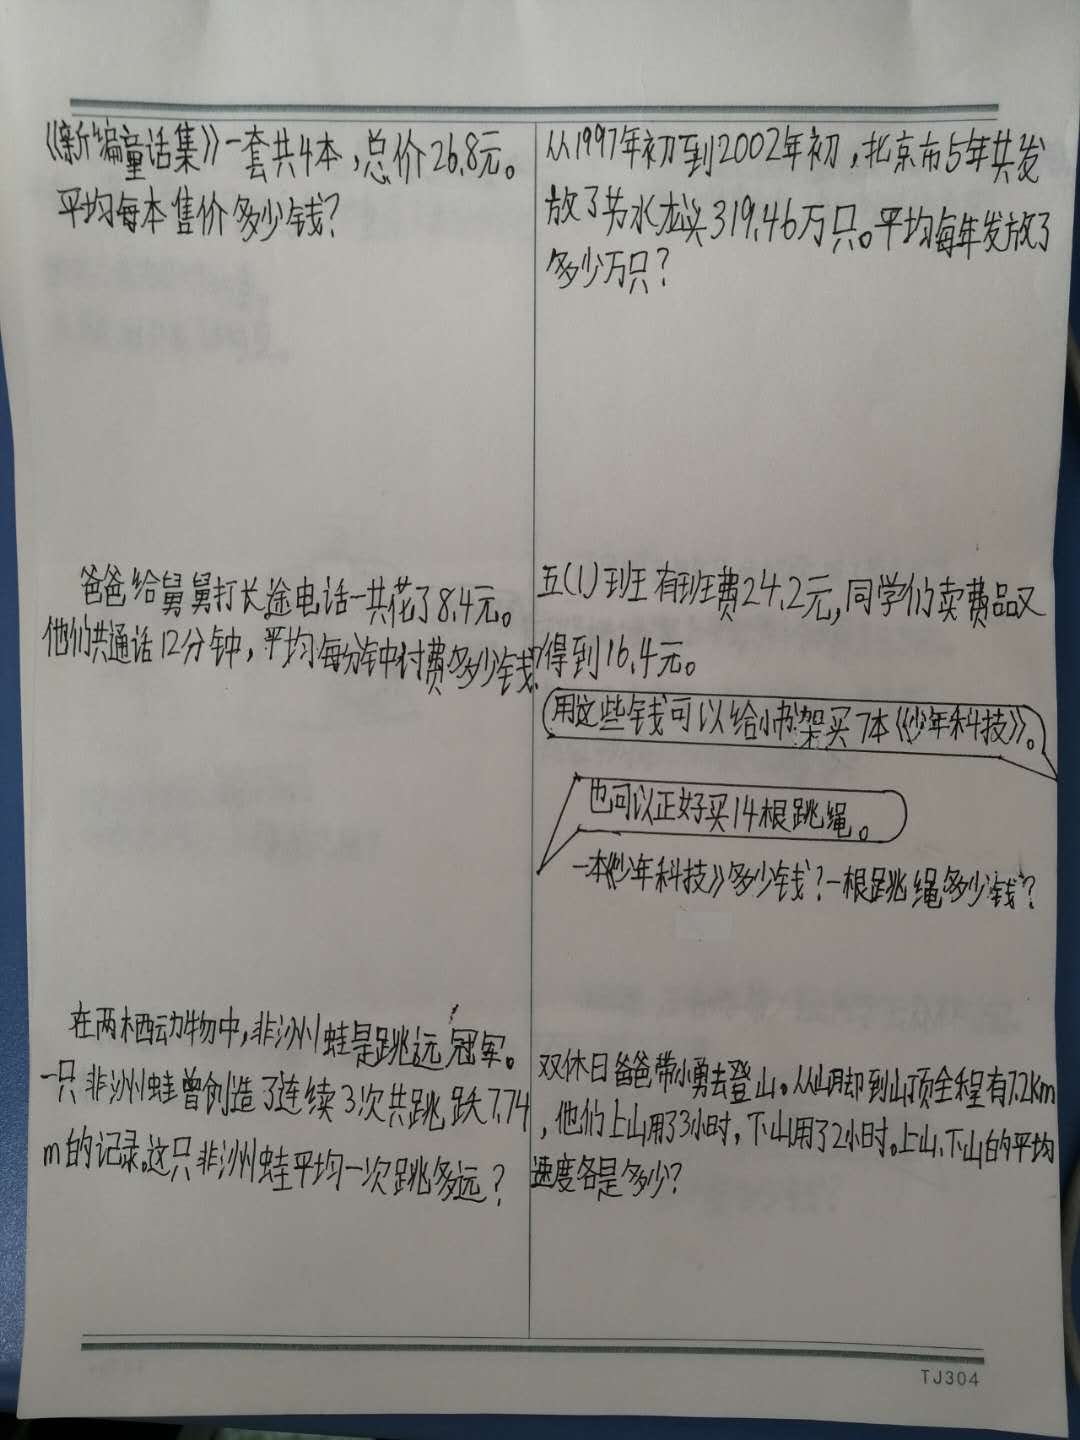 《新编童话集》一套共4本，总价26.8元。
平均每本售价多少钱？
从1997年初到2002年初，北京市5年共发
放了节水龙头319.46万只。平均每年发放了
多少万只？
爸爸给舅舅打长途电话一共花了8.4元。
他们共通话12分钟，平均每分钟付费多少钱？
五(1)班有班费24.2元，同学们卖费品又
得到16.4元。
用这些钱可以给小书架买7本《少年科技》。
也可以正好买14根跳绳。
一本《少年科技》多少钱？一根跳绳多少钱？
在两栖动物中，非洲蛙是跳远冠军。
一只非洲蛙曾创造了连续3次共跳跃7.74
m的记录。这只非洲蛙平均一次跳多远？
双休日爸爸带小勇去登山。从山脚到山顶全程有7.2km
，他们上山用了3小时，下山用了2小时。上山、下山的平均
速度各是多少？
TJ304